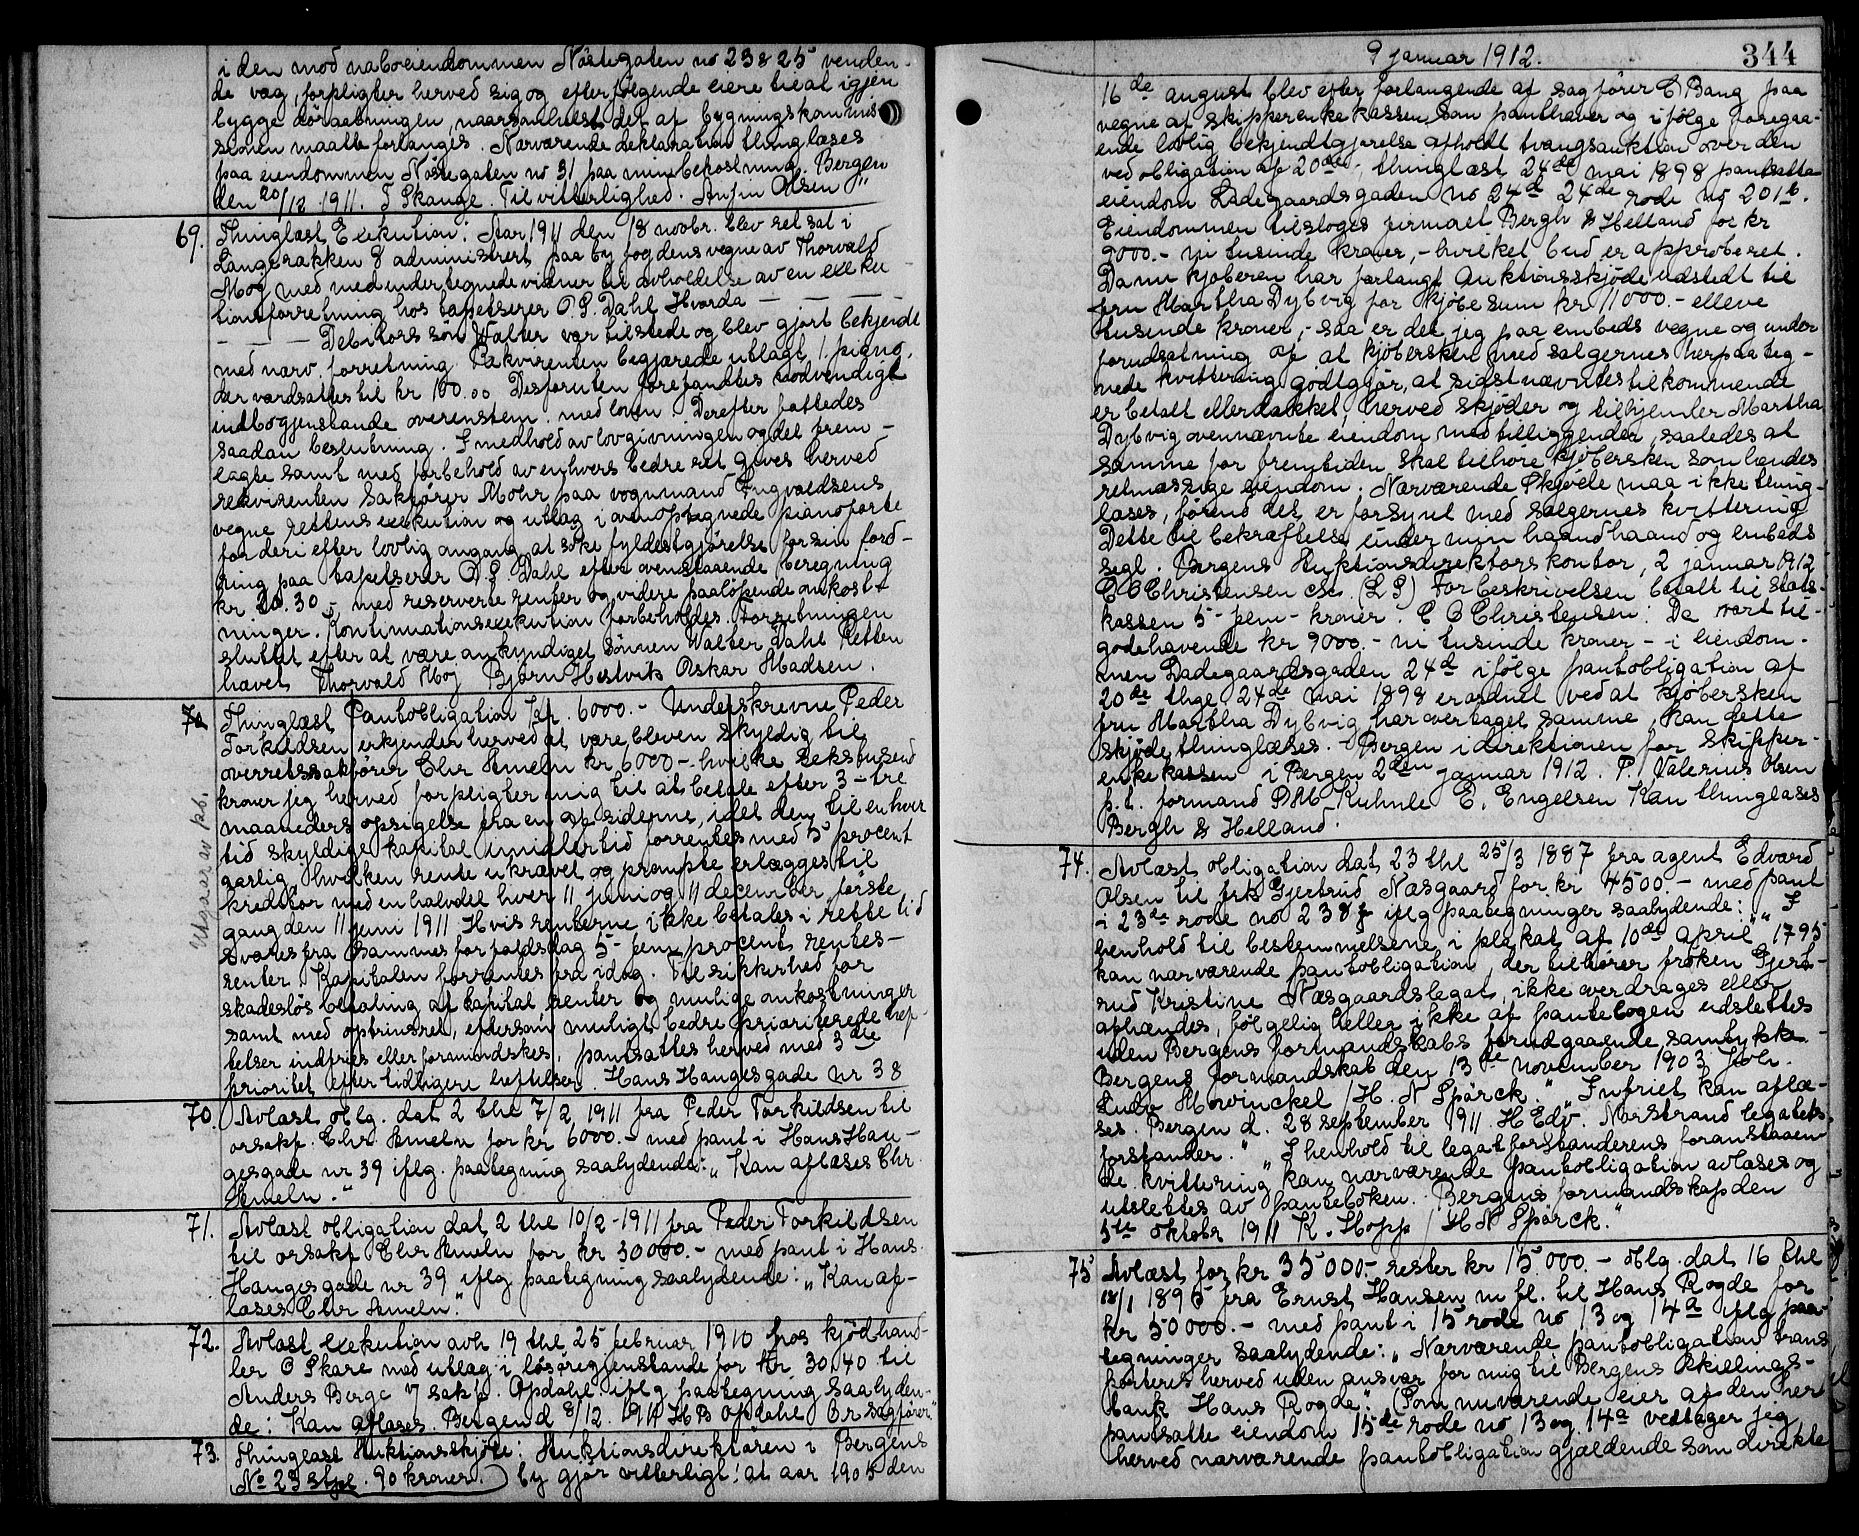 i den mod naboeiendommen Nöstegaten no 23 & 25 venden-
de væg, forpligter herved sig og efterfölgende eiere til at igjen
bygge döraabningen, naarsomhelst det af bygningskommis
sionen maatte forlanges. Nærværende deklaration thinglæses
paa eiendommen Nöstegaten no 31 paa min bekostning. Bergen
den 20/12 1911. J Skange. Til vitterlighed. Anfin Olsen"
69. Thinglæst Exekution: Aar 1911 den 18 novbr. blev ret sat i
Langerækken 8 administrert paa byfogdens vegne av Thorvald
Moj med medundertegnede vidner til avholdelse av en exeku
tionsforretning hos tapetserer O. S. Dahl. Hvorda — — —
— — — Debitors sön Walter var tilstede og blev gjort bekjendt
med nærv. forretning. Rekvirenten begjærede utlagt 1 piano.
der værdsattes til kr 100.00 Desforuten forefandtes nödvendigt
indbogjenstande overenstem. med loven. Derefter fattedes
saadan beslutning. I medhold av lovgivningen og det frem-
lagte samt med forbehold av enhvers bedre ret gives herved
rekvirenten Sakförer Mohr paa vognmand Yngvaldsens
vegne rettens exekution og utlæg i ovenoptegnede pianoforte
for deri efter lovlig omgang at söke fyldestgjörelse for sin ford-
ring paa tapetserer O. S. Dahl efter ovenstaaende beregning
kr 20.30 - med reserverte renter og videre paalöpende omkost-
ninger. Kontinuationsexekution forbeholdes. Forretningen
sluttet efter at være ankyndiget Sönnen Walter Dahl Retten
hævet Thorvald Moj Bjarn Hestvik Oskar Madsen.
70 Thinglæst Pantobligation kr. 6000.- Underskrevne Peder
Torkildsen erkjender herved at være bleven skyldig til
overretssakförer Chr Ameln kr 6000 - hvilke seks tusend
kroner jeg herved forpligter mig til at betale efter 3 - tre
maaneders opsigelse fra en af siderne, idet den til enhver
tid skyldige kapital imidlertid forrentes med 5 procent
aarlig, hvilken rente ukrævet og prompte erlægges til
kreditor med en halvdel hver 11 juni og 11 december, förste
gang den 11 juni 1911 Hvis renterne ikke betales i rette tid
svares fra sammes forfaldsdag 5 - fem procent rentes-
renter. Kapitalen forrentes fra idag. Til sikkerhed for
skadeslös betaling af kapital, renter og mulige omkostninger
samt med optrinsret, eftersom muligt bedre prioriterede hef-
telser indfries eller formindskes, pantsættes herved med 3die
prioritet efter tidligere heftelser. Hans Haugesgade nr 38
Utgaar av pb.
70. Avlæst oblg. dat 2 thl 7/2 1911 fra Peder Torkildsen til
orsakf. Chr. Ameln for kr 6000.- med pant i Hans Hau-
gesgade nr 39 iflg. paategning saalydende: „Kan aflæses Chr.
Ameln."
71. Avlæst obligation dat 2 thl 10/2 - 1911 fra Peder Torkildsen
til orsakf Chr Ameln for kr 30000.- med pant i Hans
Haugesgade nr 39 iflg paategning saalydende: „Kan af-
læses Chr Ameln".
72. Avlæst exekution avh 19 thl 25 februar 1910 hos kjödhand-
ler O Skare med utlæg i lösöregjenstande for kr 30.40 til
Anders Berge v/ sakf. Opdahl iflg paategning saalyden-
de: Kan aflæses. Bergen d 8/12. 1911 H B Opdahl Or sagförer"
73. Thinglæst Auktionsskjöte: Auktionsdirektören i Bergens
No 23 stpl. 90 kroner. by gjör vitterligt: at aar 1905 den
9 januar 1912.
344
16de august blev efter forlangende af sagförer C Bang paa
vegne af skipperenkekassen som panthaver og ifölge foregaa-
ende lovlig bekjendtgjörelse afholdt tvangsauktion over den
ved obligation af 20de, thinglæst 24de mai 1898 pantsatte
eiendom Ladegaardsgaden no 24d 24de rode no 201b.
Eiendommen tilsloges firmaet Bergh & Helland for kr
9000.- ni tusinde kroner, - hvilket bud er approberet.
Da nu kjöberen har forlangt Auktionsskjöde udstedt til
fru Martha Dybvig for kjöbesum kr 11000.- elleve
tusinde kroner, - saa er det jeg paa embeds vegne og under
forudsætning af at kjöbersken med sælgernes herpaa teg-
nede kvittering godtgjör, at sidstnævntes tilkommende
er betalt eller dækket, herved skjöder og tilhjemler Martha
Dybvig ovennævnte eiendom med tilliggender, saaledes at
samme for fremtiden skal tilhöre kjöbersken som hendes
retmæssige eiendom. Nærværende Skjöde maa ikke thing-
læses, förend det er forsynt med sælgernes kvittering
Dette til bekræftelse under min haand haand og embeds
segl. Bergens Auktionsdirektörs kontor, 2 januar 1912
C C Christensen csc. (L S) For beskrivelsen betalt til stats-
kassen 5 - fem - kroner. C C Christensen: Da vort til-
godehavende kr 9000.- ni tusinde kroner - i eiendom-
men Ladegaardsgaden 24d ifölge pantobligation af
20de thgl 24de mai 1898 er ordnet ved at kjöbersken
fru Martha Dybvig har overtaget samme, kan dette
skjöde thinglæses. - Bergen i direktionen for skipper-
enkekassen i Bergen 2den januar 1912. P. Valerius Olsen
p. t. formand D M Kuhnle E. Engelsen Kan thinglæses
Bergh & Helland.
74. Avlæst obligation dat 23 thl 25/3 1887 fra agent Edvard
Olsen til frk Gjertrud Næsgaard for kr 4500.- med pant
i 23de rode no 238 f iflg paategninger saalydende: „I
henhold til bestemmelsene i plakat af 10de april 1795
kan nærværende pantobligation, der tilhörer fröken Gjert-
rud Kristine Næsgaards legat, ikke overdrages eller
afhændes, fölgelig heller ikke af pantebogen udslettes
uden Bergens formandskabs forudgaaende samtykke
Bergens formandskab den 13de november 1903 Joh.
Ludv Mowinckel / H. N Spörck." „Indfriet kan aflæ-
ses. Bergen d. 28 september 1911. H Edv. Norstrand legatets
forstander." „I henhold til legatforstanderens foranstaaen-
de kvittering kan nærværende pantobligation avlæses og
utslettes av panteboken. Bergens formandskap den
5te oktobr 1911 K. Hopp / H N Spörck."
75 Avlæst for kr 35000.- rester kr 15000.- oblg dat 16 thl
18/1 1895 fra Ernst Hansen m fl. til Hans Rogde for
kr 50000.- med pant i 15 rode no 13 og 14a iflg paa-
tegninger saalydende: „Nærværende pantobligation trans
porteres herved uden ansvar for mig til Bergens Skillings-
bank Hans Rogde". „Som nuværende eier af den her
pantsatte eiendom 15de rode no 13 og 14a vedtager jeg
herved nærværende pantobligation gjældende som direkte